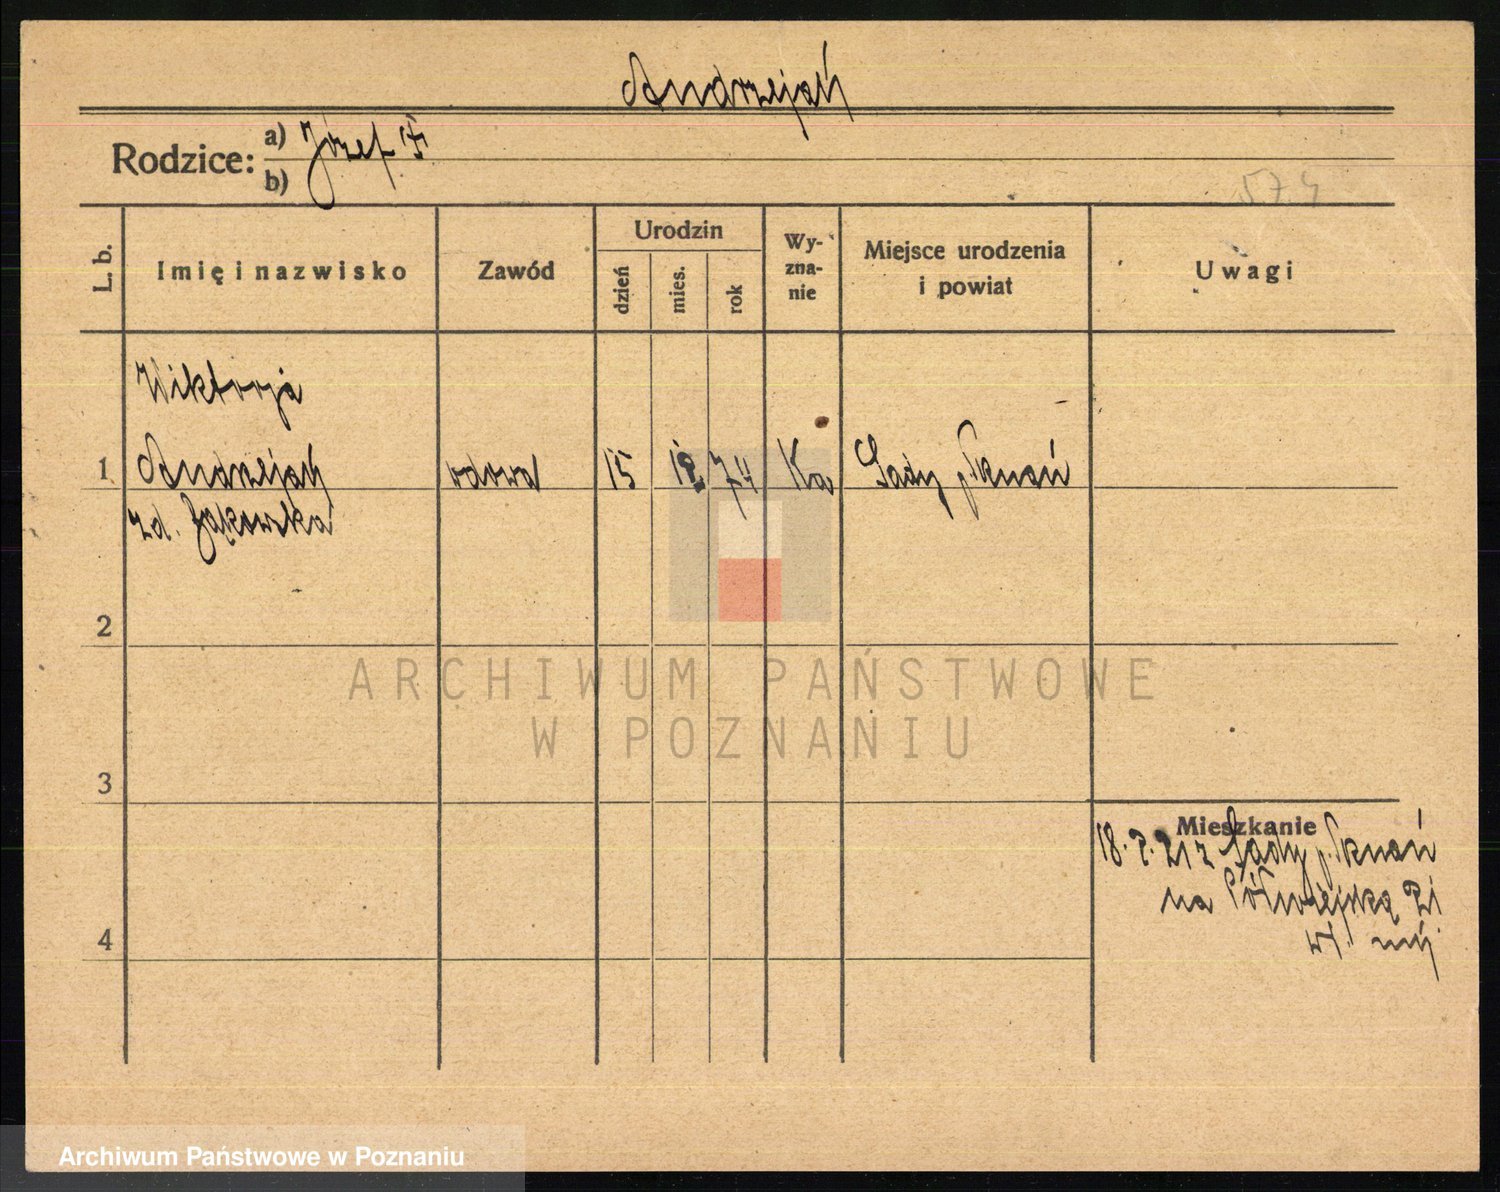 Andrzejak
Rodzice: a) Józef
b)
57.4
L. b.
Imię i nazwisko
Zawód
Urodzin
dzień
mies.
rok
Wy-
zna-
nie
Miejsce urodzenia
i powiat
Uwagi
Wiktorja
1 Andrzejak wdowa 15 12 74 Ka Sady p. Poznań
zd. Żąkowska
2
3
4
Mieszkanie
18. 2. 21 z Sady p. Poznań
na Półwiejską 21
wł. mój
ARCHIWUM PAŃSTWOWE
W POZNANIU
Archiwum Państwowe w Poznaniu